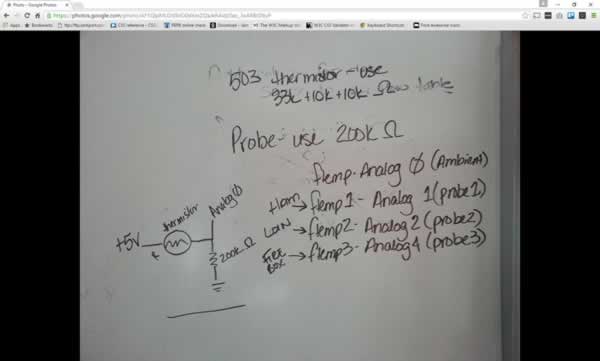 Photo - Google Photos
https://photos.google.com/photo/
Apps
Bookmarks
CSS reference - CSS
Download
The W3C Markup
W3C CSS Validation
Keyboard Shortcuts
503 thermistor - use
33k + 10k + 10k Ω
Probe - use 200k Ω
ftemp - Analog 0 (Ambient)
→ ftemp1 - Analog 1 (probe1)
→ ftemp2 - Analog 2 (probe2)
Fire Box → ftemp3 - Analog 4 (probe3)
thermistor
Analog 0
+5V
200k Ω